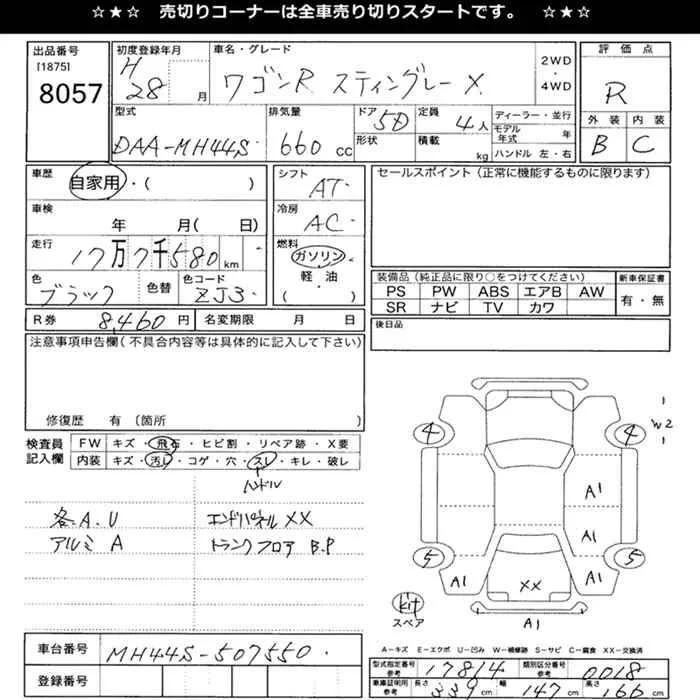 ☆★☆ 売切りコーナーは全車売り切りスタートです。 ☆★☆
出品番号
[1875]
8057
初度登録年月
H
28 月
車名・グレード
ワゴンR スティングレー X
2WD
・
4WD
評価点
R
外装 内装
B C
型式
DAA-MH44S
排気量
660 cc
ドア
5D
形状
定員
4人
積載
kg
ディーラー・並行
モデル年式 年
ハンドル 左・右
車歴
自家用・( )
シフト
AT
セールスポイント(正常に機能するものに限ります)
車検
年 月( 日)
冷房
AC
走行
17万7千580 km
燃料
ガソリン
軽・油
( )
色
ブラック
色替
色コード
ZJ3
装備品(純正品に限り○をつけてください)
新車保証書
PS PW ABS エアB AW
SR ナビ TV カワ
有・無
R券 8,460円
名変期限 月 日
後日品
注意事項申告欄(不具合内容等は具体的に記入して下さい)
修復歴 有(箇所 )
検査員
記入欄
FW キズ・飛石・ヒビ割・リペア跡・X要
内装 キズ・汚レ・コゲ・穴・スレ・キレ・破レ
ハンドル
各A.U
エンドパネルXX
アルミ A
トランクフロア B.P
4
4
W2
A1
A1
5
5
A1
A1
XX
kit
スペア
A1
A-キズ E-エクボ U-凹み W-補修跡 S-サビ C-腐食 XX-交換済
車台番号
MH44S-507550
登録番号
型式指定番号
参考
17814
類別区分番号
参考
0018
車庫証明用
参考
長さ
339cm
幅
147cm
高さ
166cm